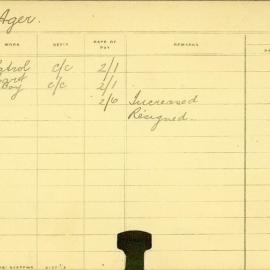 Ager.
WORK DEP'T RATE OF PAY REMARKS
c/c 2/1
Boy c/c 2/1
2/6 Increased
Resigned.